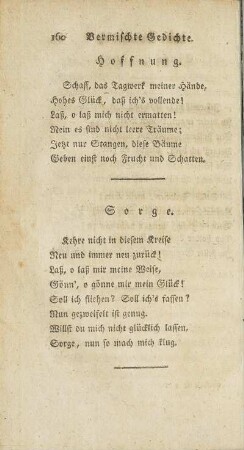 160 Vermischte Gedichte.
Hoffnung.
Schaff, das Tagwerk meiner Hände,
Hohes Glück, daß ich's vollende!
Laß, o laß mich nicht ermatten!
Nein es sind nicht leere Träume;
Jetzt nur Stangen, diese Bäume
Geben einst noch Frucht und Schatten.
Sorge.
Kehre nicht in diesem Kreise
Neu und immer neu zurück!
Laß, o laß mir meine Weise,
Gönn', o gönne mir mein Glück!
Soll ich fliehen? Soll ich's fassen?
Nun gezweifelt ist genug.
Willst du mich nicht glücklich lassen,
Sorge, nun so mach mich klug.